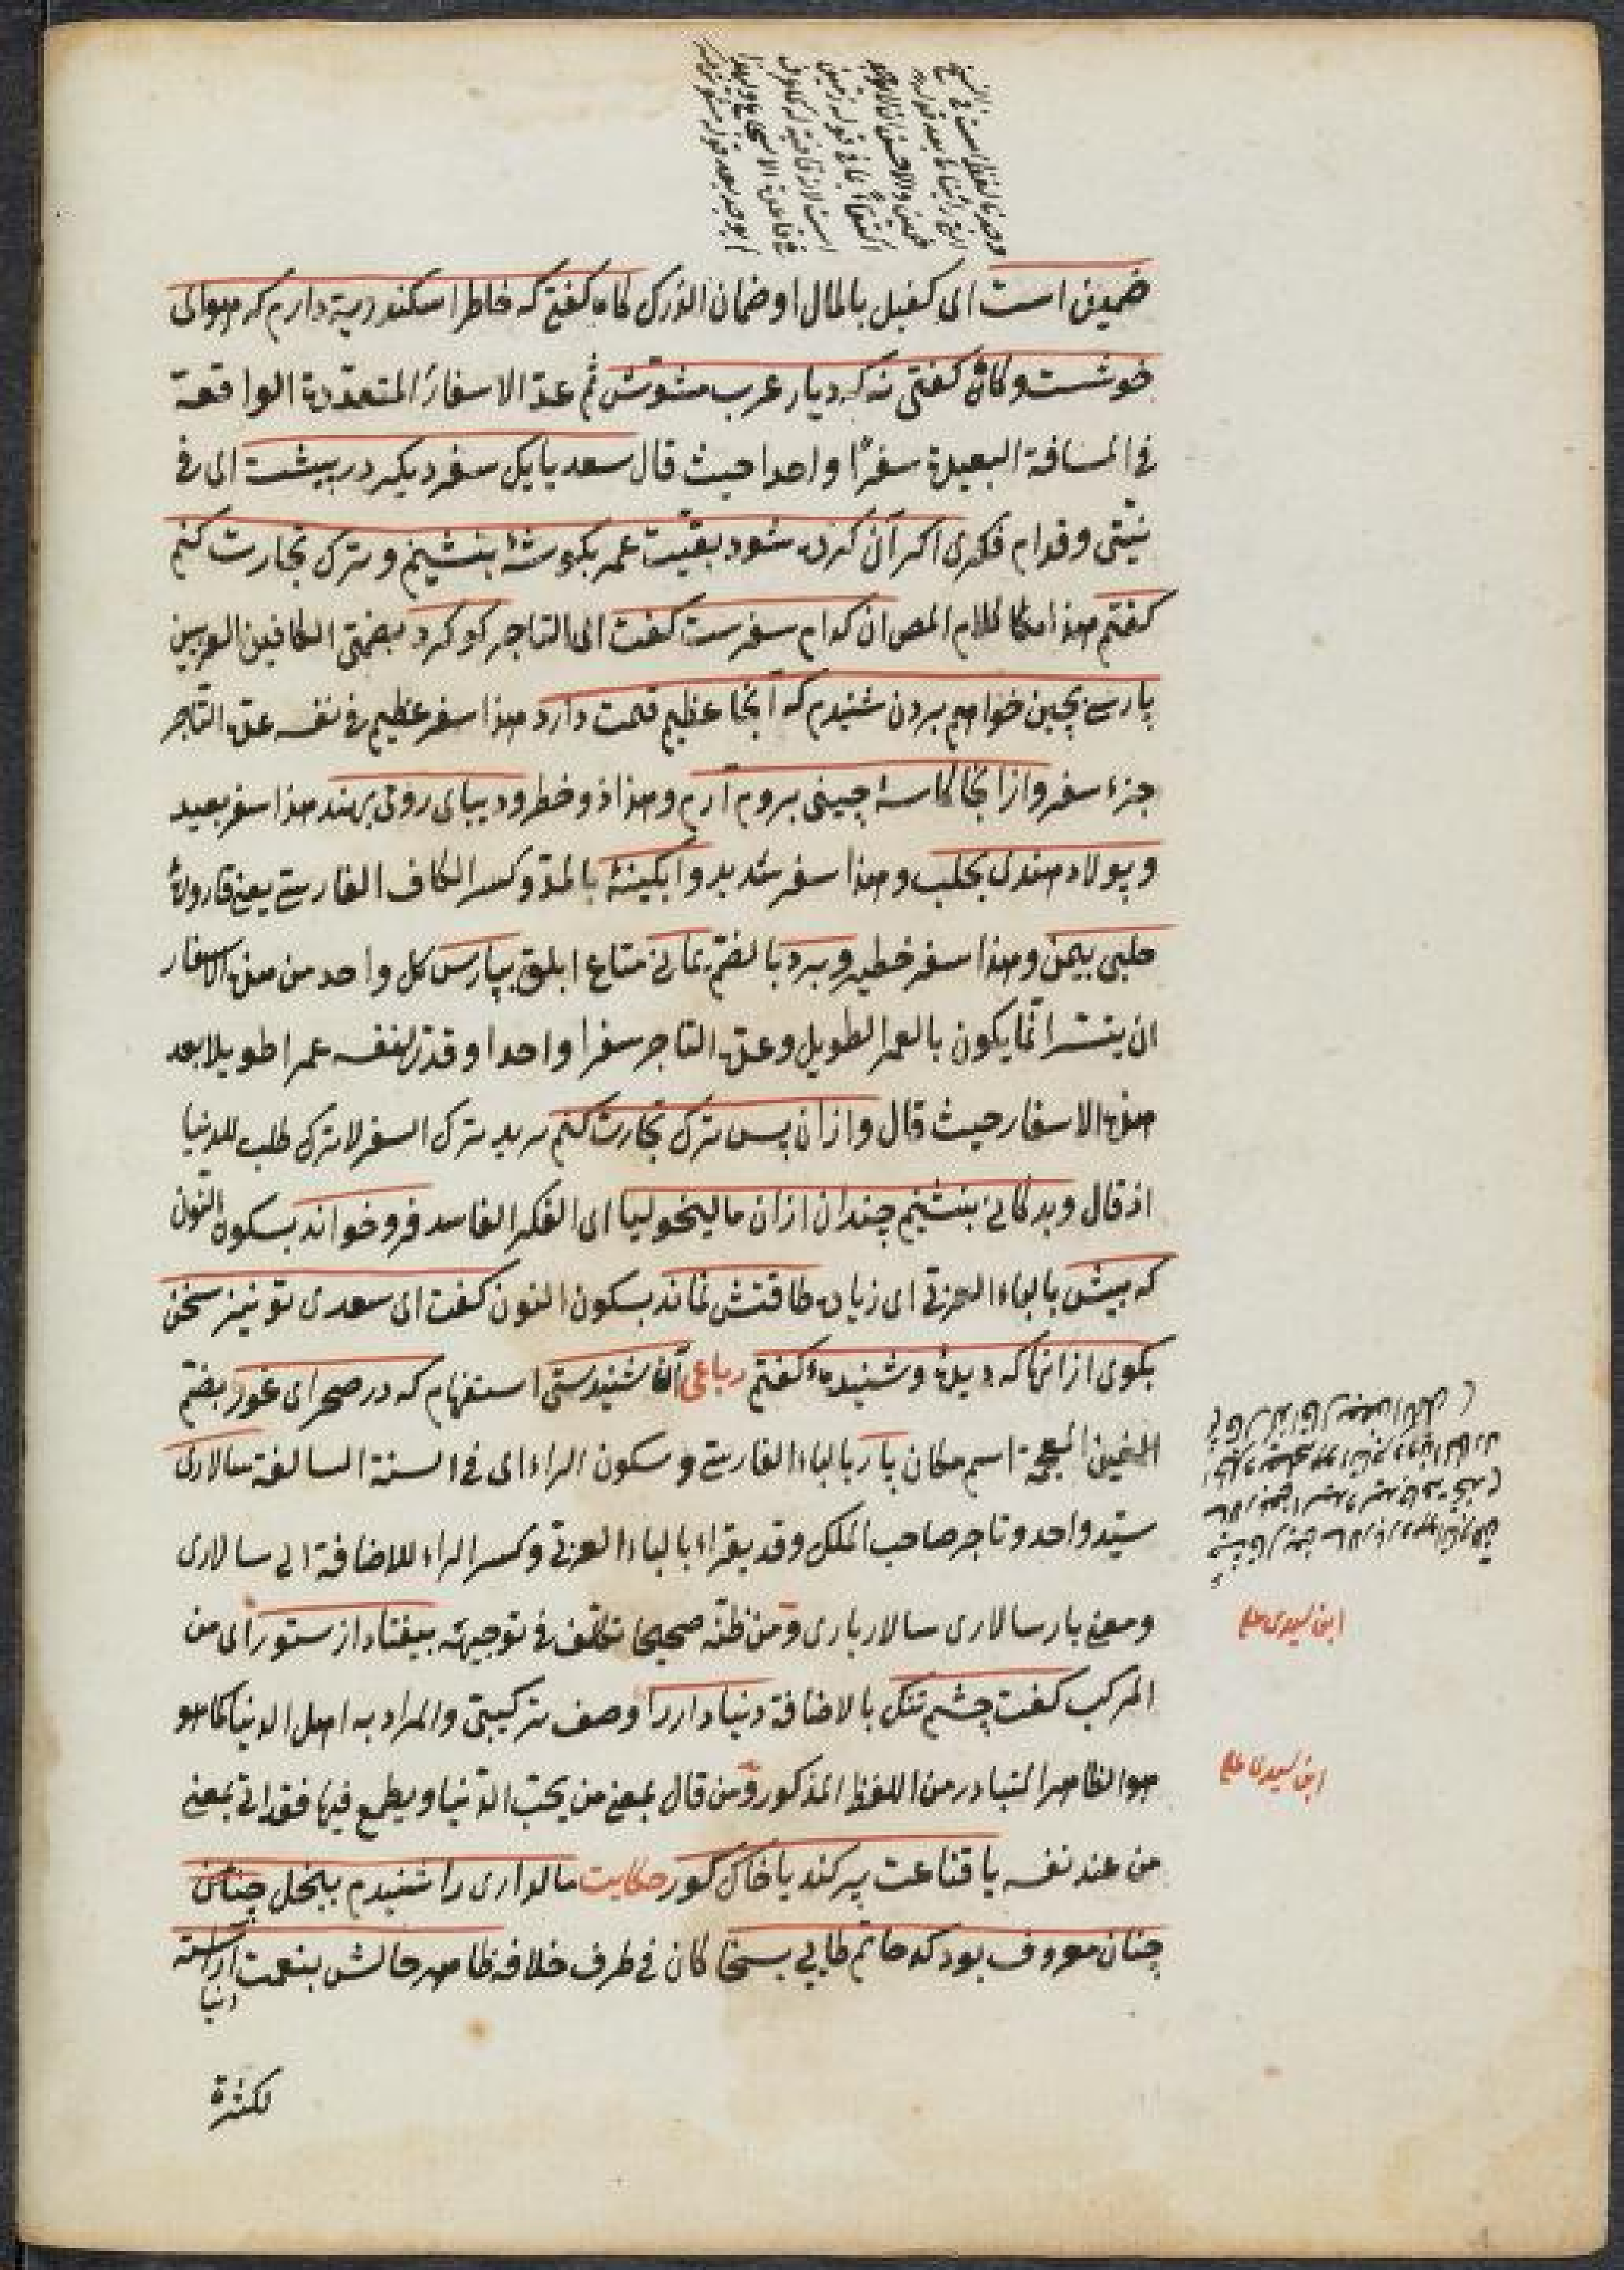 ضمین است ای کفیل بالمال او ضمان الدرک کاه کفتی که خاطر اسکندریة دارم که هوائی
خوشست و کاهٔ کفتی نه که دیار عرب مشوّش ثم عدّ الاسفار المتعدّدة الواقعة
فی المسافة البعیدة سفرًا واحدا حیث قال سعدیا یک سفر دیکر در پیشت ای فی
نیّتی وقدام فکری اکر آن کرده شود بقیّت عمر بکوشهٔ بنشینم وترک تجارت کنم
کفتم هذا مکا کلام المص ان کدام سفرست کفت ای التاجر کوکرد بضمتی الکافین العربیین
پارسی بچین خواهم بردن شنیدم که آنجا عظیم قیمت دارد هذا سفر عظیم فی نفسه عدّه التاجر
جزء سفر واز انجا کاسهٔ چینی بروم آرم وهذا ذو خطر ودیبای رومی بهند هذا سفر بعید
وپولاد هندی بحلب وهذا سفر شدید وابکینهٔ بالمدّ وکسر الکاف الفارسی یعنی قارورهٔ
حلبی بیمن وهذا سفر خطیر وبرد بالضمّ یمانی متاع ابلق بپارس کل واحد من هذه الاسفار
ان یتسر انّما یکون بالعمر الطویل وعدّه التاجر سفرا واحدا وقدّر لنفسه عمرا طویلا بعد
هذه الاسفار حیث قال وازان پس ترک تجارت کنم یرید ترک السفر لا ترک طلب للدنیا
اذ قال وبدکانی بنشینم چندان ازان مالیخولیا ای الفکر الفاسد فرو خواند بسکون النون
که بیش بالباء العربی ای زیاده طاقتش نماند بسکون النون کفت ای سعدی تو نیز سخن
بکوی ازانها که دیدهٔ وشنیدهٔ کفتم رباعی آن شنیدستی استفهام که در صحرای غور بضم
الغین المعجمة اسم مکان پار بالباء الفارسی وسکون الراء ای فی السنة السالفة سالاری
سیّد واحد وتاجر صاحب الملک وقد یقراء بالباء العربی وکسر الراء للاضافة الی سالاری
ومعنی بار سالاری سالار باری ومن ظنّه صحیحا تکلّف فی توجیهه بیفتاد از ستور ای من
المرکب کفت چشم تنک بالاضافة دنیا دار را وصف ترکیبی والمراد به اهل الدنیا کما هو
هو الظاهر المتبادر من اللفظ المذکور ومن قال بمعنی من یحبّ الدّنیا ویطمع فیها فقد اتی بمعنی
من عند نفسه یا قناعت پر کند یا خاک کور حکایت مالداری را شنیدم ببخل چنان
چنان معروف بود که حاتم طایی بسخا کان فی طرف خلافه ظاهر حالش بنعمت آراسته
دنیا
لکثرة
ابن سیدی علی
ابن سیدی علی